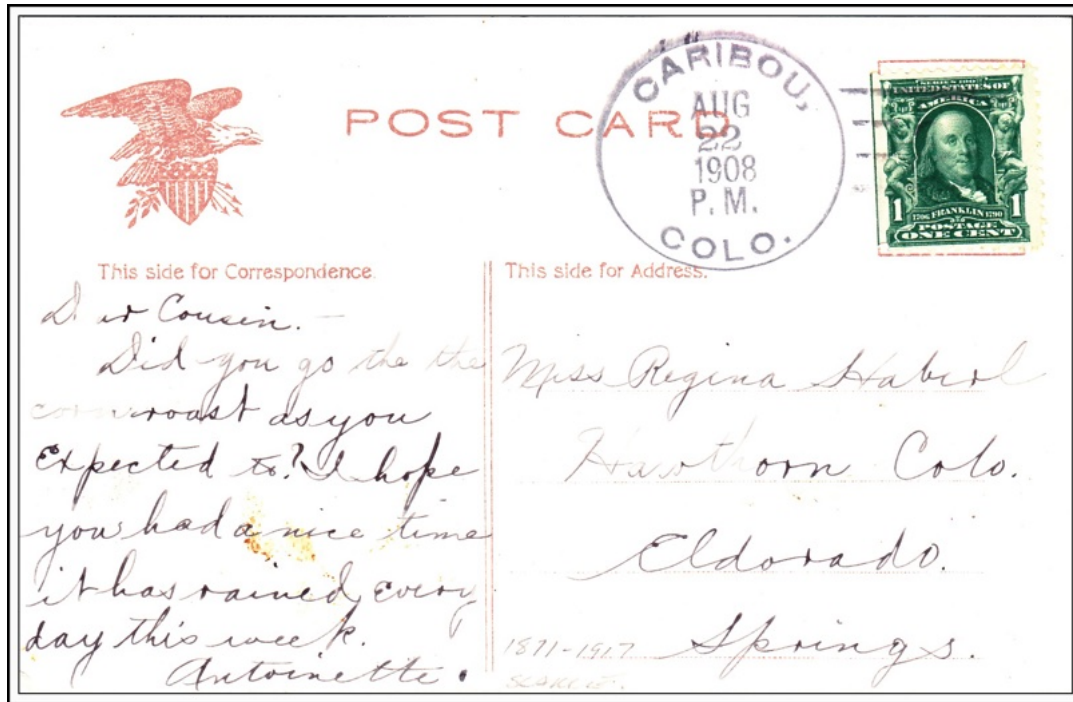 POST CARD
CARIBOU,
AUG
22
1908
P. M.
COLO.
SERIES 1902
UNITED STATES OF
AMERICA
1706 FRANKLIN 1790
1 1
POSTAGE
ONE CENT
This side for Correspondence.
D ar Cousin. —
Did you go the the
corn roast as you
Expected to? I hope
you had a nice time
it has rained every
day this week.
Antoinette.
This side for Address.
Miss Regina Haberl
Hawthorn Colo.
Eldorado.
Springs.
1871-1917